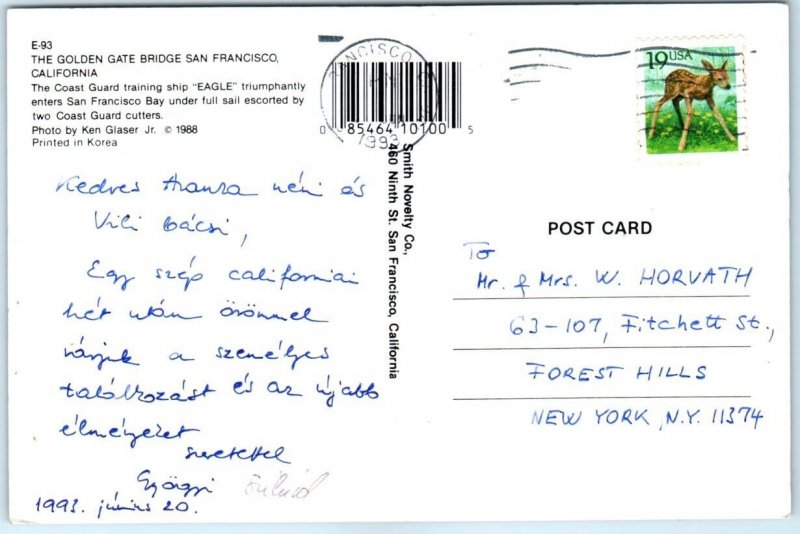 E-93
THE GOLDEN GATE BRIDGE SAN FRANCISCO,
CALIFORNIA
The Coast Guard training ship "EAGLE" triumphantly
enters San Francisco Bay under full sail escorted by
two Coast Guard cutters.
Photo by Ken Glaser Jr. © 1988
Printed in Korea
Kedves Aranka néni és
Vili bácsi,
Egy szép californiai
hét után örömmel
várjuk a személyes
találkozást és az újabb
élményeket
szeretettel
Györgyi
1993. június 20.
0 85464 10100 5
1993
Smith Novelty Co.,
460 Ninth St. San Francisco, California
19 USA
POST CARD
To
Mr. & Mrs. W. HORVATH
63-107, Fitchett St.,
FOREST HILLS
NEW YORK, N.Y. 11374